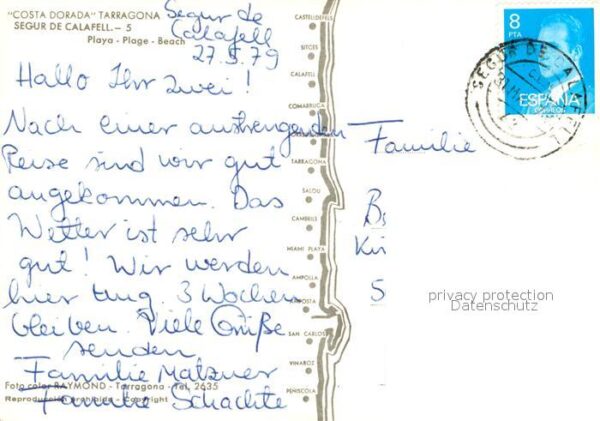 "COSTA DORADA" TARRAGONA
SEGUR DE CALAFELL.— 5
Playa - Plage - Beach
Segur de
Calafell
27.5.79
Hallo Ihr zwei!
Nach einer anstrengenden
Reise sind wir gut
angekommen. Das
Wetter ist sehr
gut! Wir werden
hier 3 Wochen
bleiben. Viele Grüße
senden
Familie Matzner
Familie Schachte
Foto color RAYMOND - Tarragona - Tel. 2635
Reproducción prohibida - Copyright
CASTELLDEFELS
SITGES
CALAFELL
COMARRUGA
TARRAGONA
SALOU
CAMBRILS
MIAMI PLAYA
AMPOLLA
SAN CARLOS
VINAROZ
PEÑISCOLA
8
PTA
ESPAÑA
CORREOS
SEGUR DE CALAFELL
Familie
Kir
5
privacy protection
Datenschutz